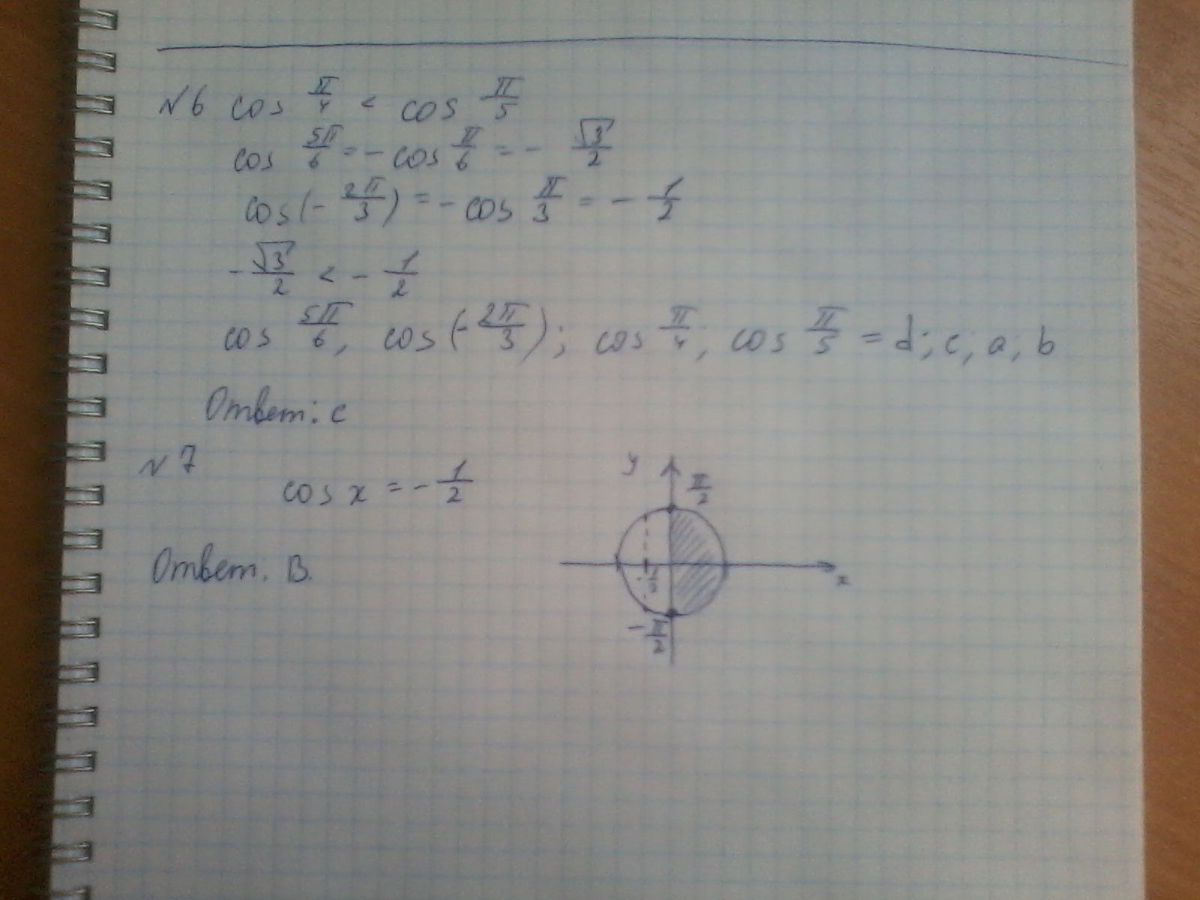 №6 cos π/4 < cos π/5
cos 5π/6 = - cos π/6 = - √3/2
cos(- 2π/3) = - cos π/3 = - 1/2
- √3/2 < - 1/2
cos 5π/6, cos(- 2π/3); cos π/4; cos π/5 = d; c; a; b
Ответ: c
№7
cos x = - 1/2
Ответ. B.
y
π/2
x
- π/2